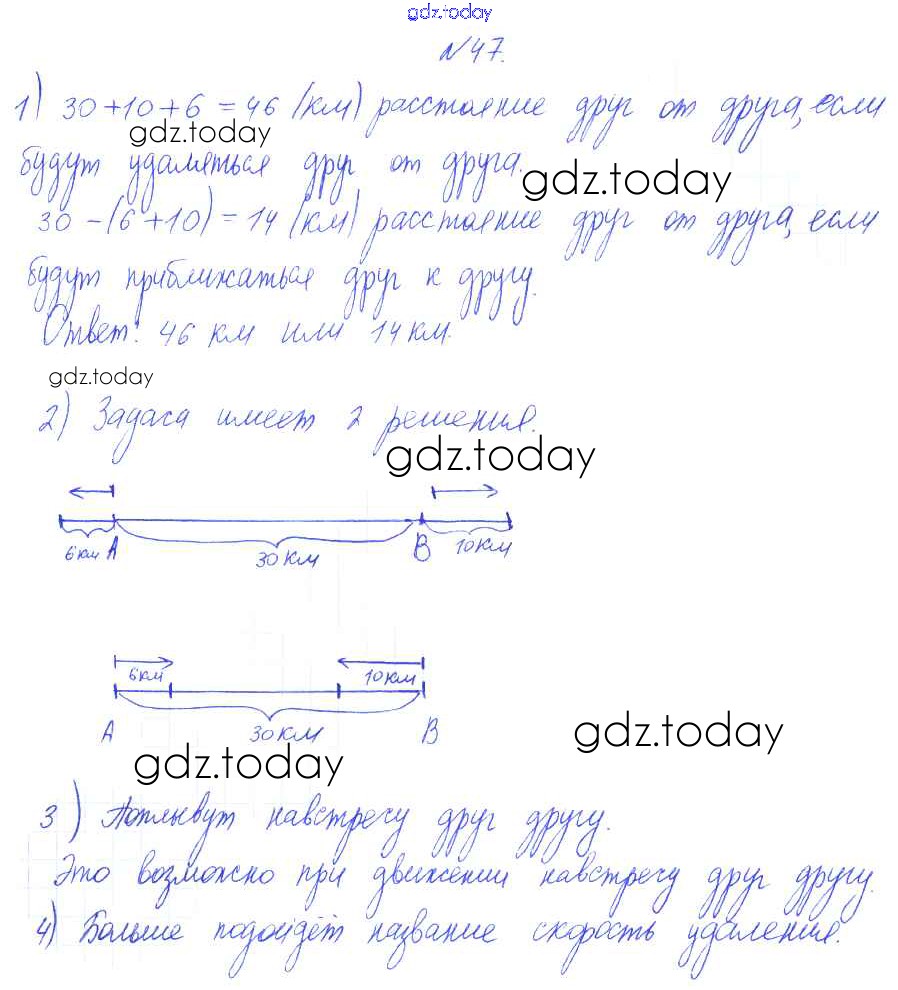 gdz.today
№47.
1) 30+10+6=46 (км) расстояние друг от друга, если
gdz.today
будут удаляться друг от друга.
gdz.today
30-(6+10)=14 (км) расстояние друг от друга, если
будут приближаться друг к другу.
Ответ: 46 км или 14 км.
gdz.today
2) Задача имеет 2 решения.
gdz.today
6 км A 30 км B 10 км
6 км 10 км
A 30 км B
gdz.today
gdz.today
3) Поплывут навстречу друг другу.
Это возможно при движении навстречу друг другу.
4) Больше подойдёт название скорость удаления.